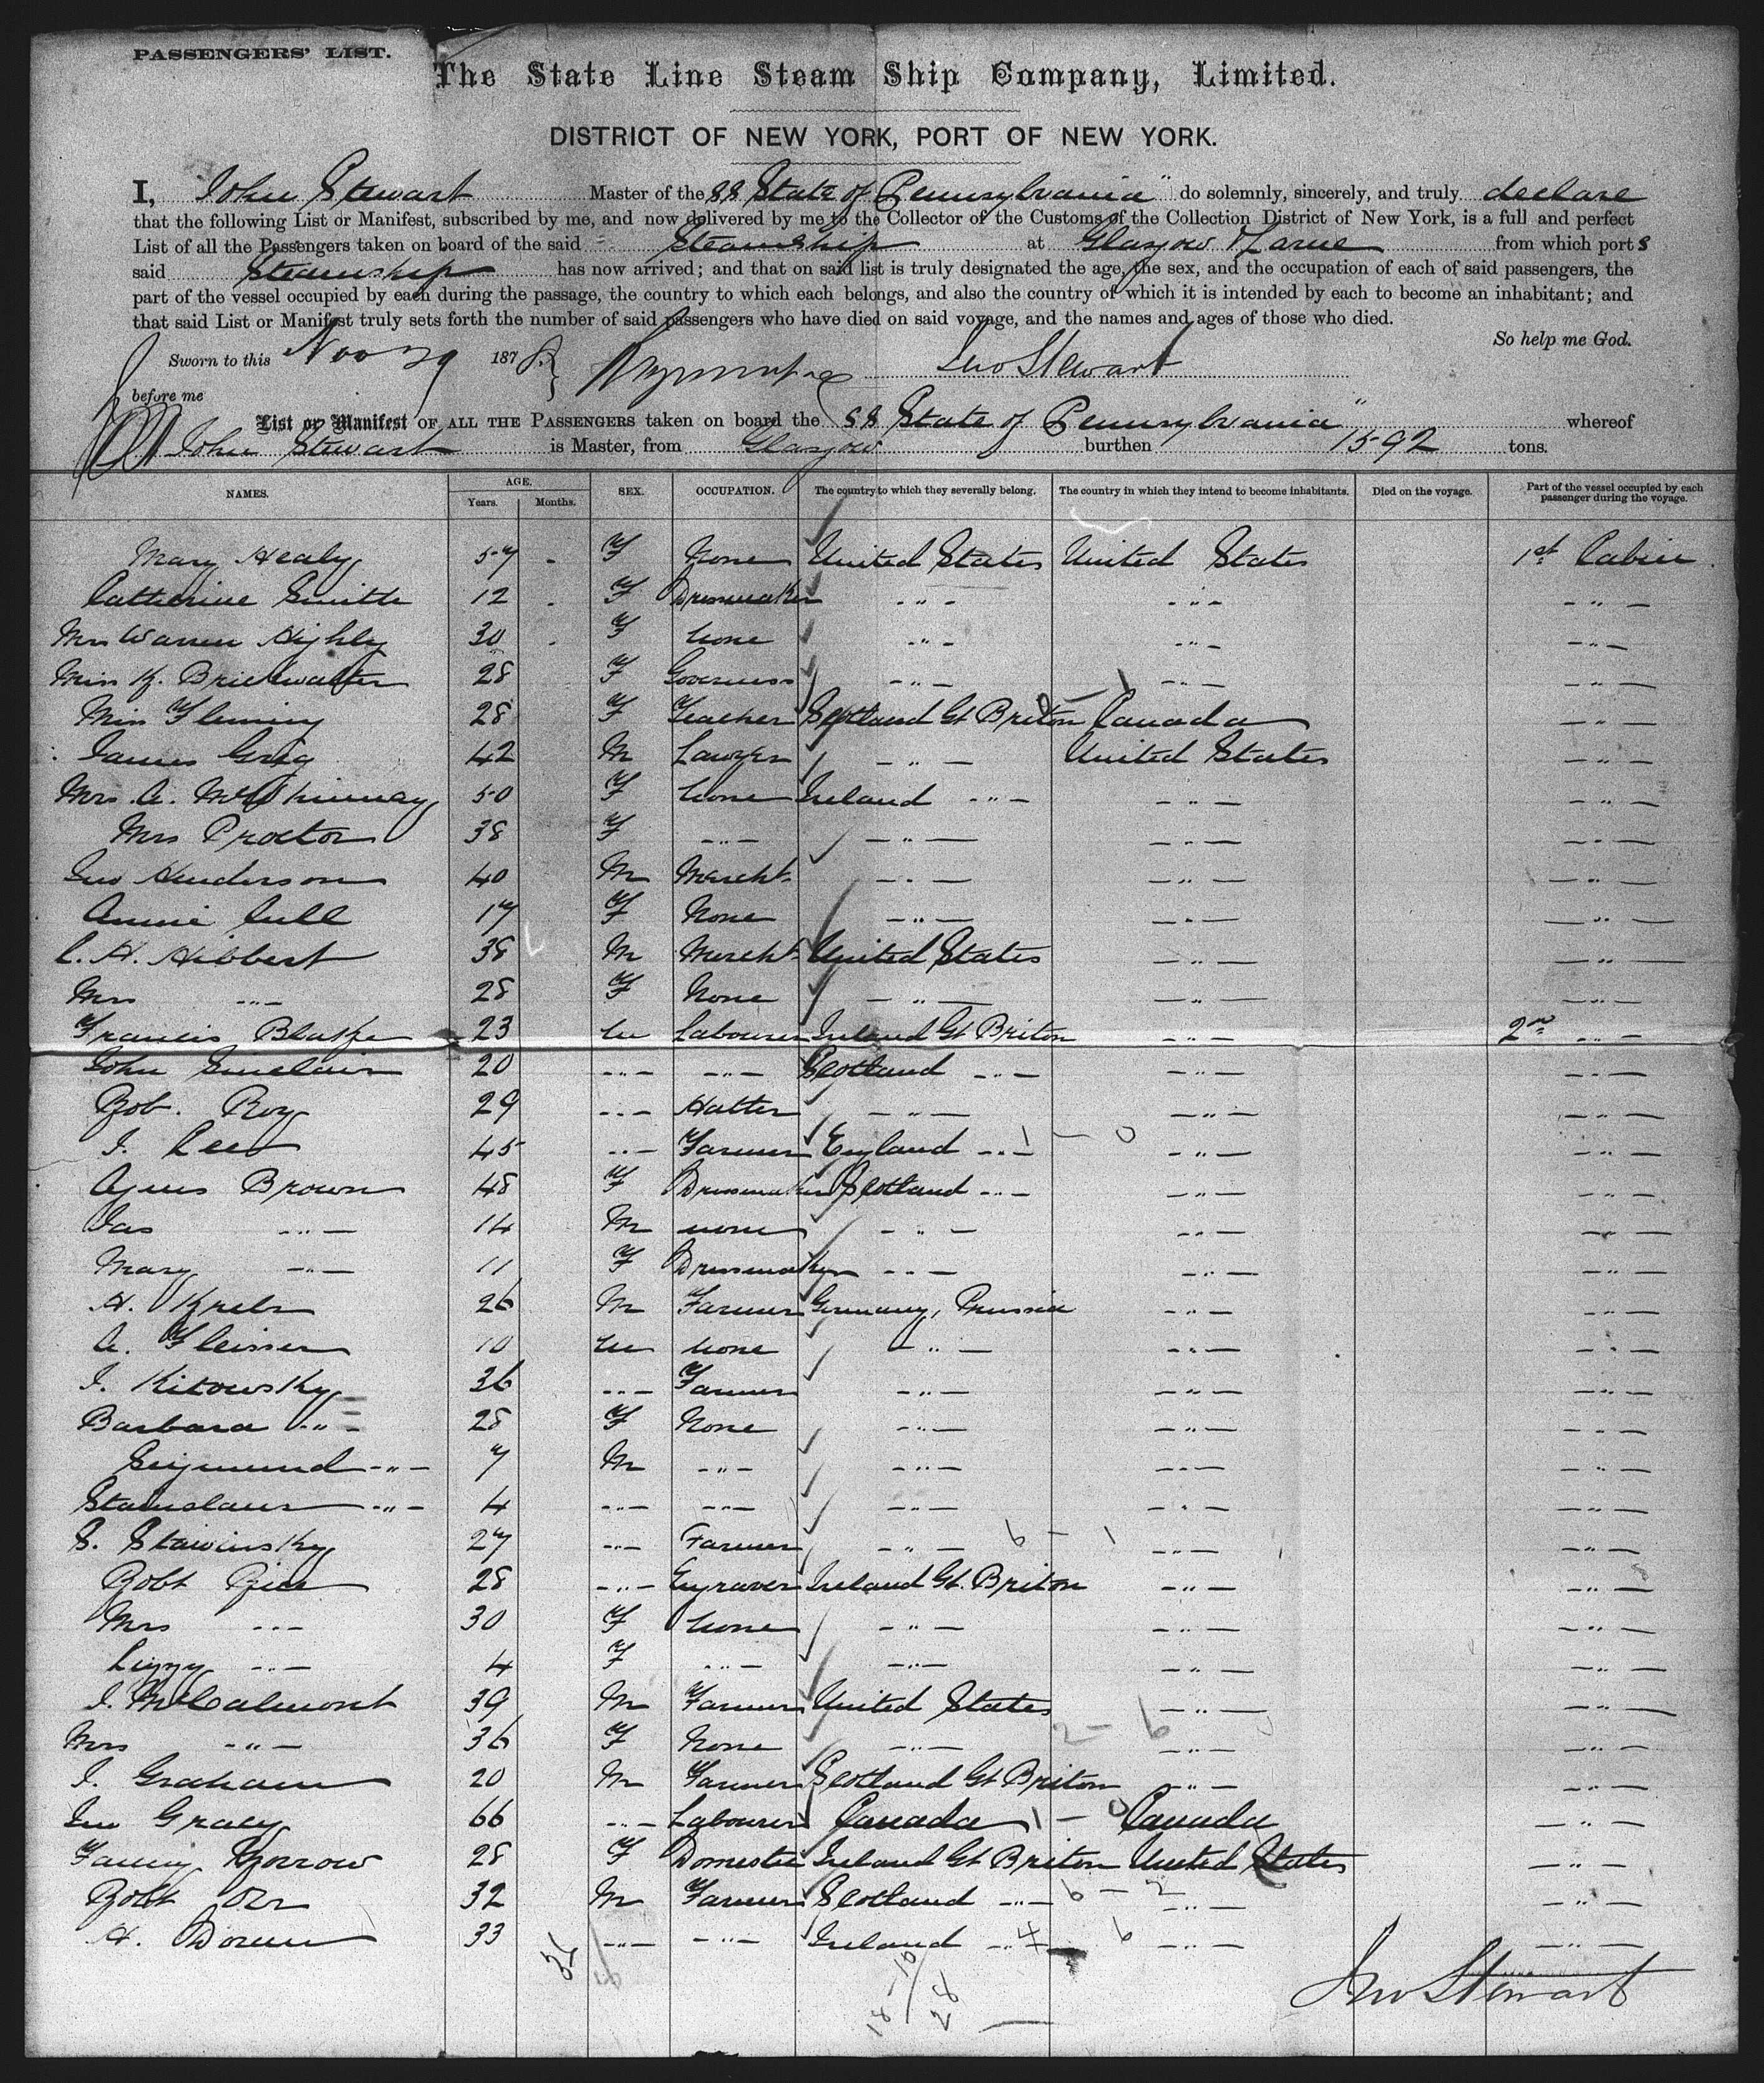 PASSENGERS' LIST.
The State Line Steam Ship Company, Limited.
DISTRICT OF NEW YORK, PORT OF NEW YORK.
I, John Stewart Master of the SS State of Pennsylvania" do solemnly, sincerely, and truly declare
that the following List or Manifest, subscribed by me, and now delivered by me to the Collector of the Customs of the Collection District of New York, is a full and perfect
List of all the Passengers taken on board of the said Steamship at Glasgow & Larne from which ports
said Steamship has now arrived; and that on said list is truly designated the age, the sex, and the occupation of each of said passengers, the
part of the vessel occupied by each during the passage, the country to which each belongs, and also the country of which it is intended by each to become an inhabitant; and
that said List or Manifest truly sets forth the number of said passengers who have died on said voyage, and the names and ages of those who died.
So help me God.
Sworn to this Nov 29 1878 Jno Stewart
before me
List or Manifest OF ALL THE PASSENGERS taken on board the SS State of Pennsylvania" whereof
John Stewart is Master, from Glasgow burthen 1592 tons.
NAMES. AGE. Years. Months. SEX. OCCUPATION. The country to which they severally belong. The country in which they intend to become inhabitants. Died on the voyage. Part of the vessel occupied by each passenger during the voyage.
Mary Healy 57 F None United States United States 1st Cabin
Catherine Smith 12 F Dressmaker -"- -"- -"-
Mrs Warren Highly 30 F none -"- -"- -"-
Miss K. Bridewalter 28 F Governess -"- -"- -"-
Miss Fleming 28 F Teacher Scotland Gt Briton Canada -"-
James Grig 42 M Lawyer -"- United States -"-
Mrs. A. McShinway 50 F none Ireland -"- -"- -"-
Mrs Proctor 38 F -"- -"- -"- -"-
Jno Henderson 40 M Mercht -"- -"- -"-
Annie Cull 17 F None -"- -"- -"-
C. H. Hibbert 38 M Mercht United States -"- -"-
Mrs -"- 28 F None -"- -"- -"-
Francis Blake 23 M Labourer Ireland Gt Briton -"- 2nd -"-
John Sinclair 20 -"- -"- Scotland -"- -"- -"-
Rob. Roy 29 -"- Hatter -"- -"- -"-
J. Lee 45 -"- Farmer England -"- 1 - 0 -"- -"-
Agnes Brown 48 F Dressmaker Scotland -"- -"- -"-
Jas -"- 14 M none -"- -"- -"-
Mary -"- 11 F Dressmaker -"- -"- -"-
H. Krebs 26 M Farmer Germany, Prussia -"- -"-
A. Fleisser 10 M none -"- -"- -"-
J. Kitowsky 36 -"- Farmer -"- -"- -"-
Barbara -"- 28 F None -"- -"- -"-
Seigmund -"- 7 M -"- -"- -"- -"-
Stanislaus -"- 4 -"- -"- -"- -"- -"-
S. Stawinsky 27 -"- Farmer -"- 6 - 1 -"- -"-
Robt Rice 28 -"- Engraver Ireland Gt. Briton -"- -"-
Mrs -"- 30 F none -"- -"- -"-
Lizzy -"- 4 F -"- -"- -"- -"-
J. McCalmont 39 M Farmer United States -"- -"-
Mrs -"- 36 F None -"- 2 - 6 -"- -"-
J. Graham 20 M Farmer Scotland Gt Briton -"- -"-
Jno Gracy 66 -"- Labourer Canada 1 - 0 Canada -"-
Fanny Morrow 28 F Domestic Ireland Gt Briton United States -"-
Robt Orr 32 M Farmer Scotland -"- 6 - 2 -"- -"-
H. Doran 33 -"- -"- Ireland -"- 4 6 -"- -"-
36
18-10/28
Jno Stewart